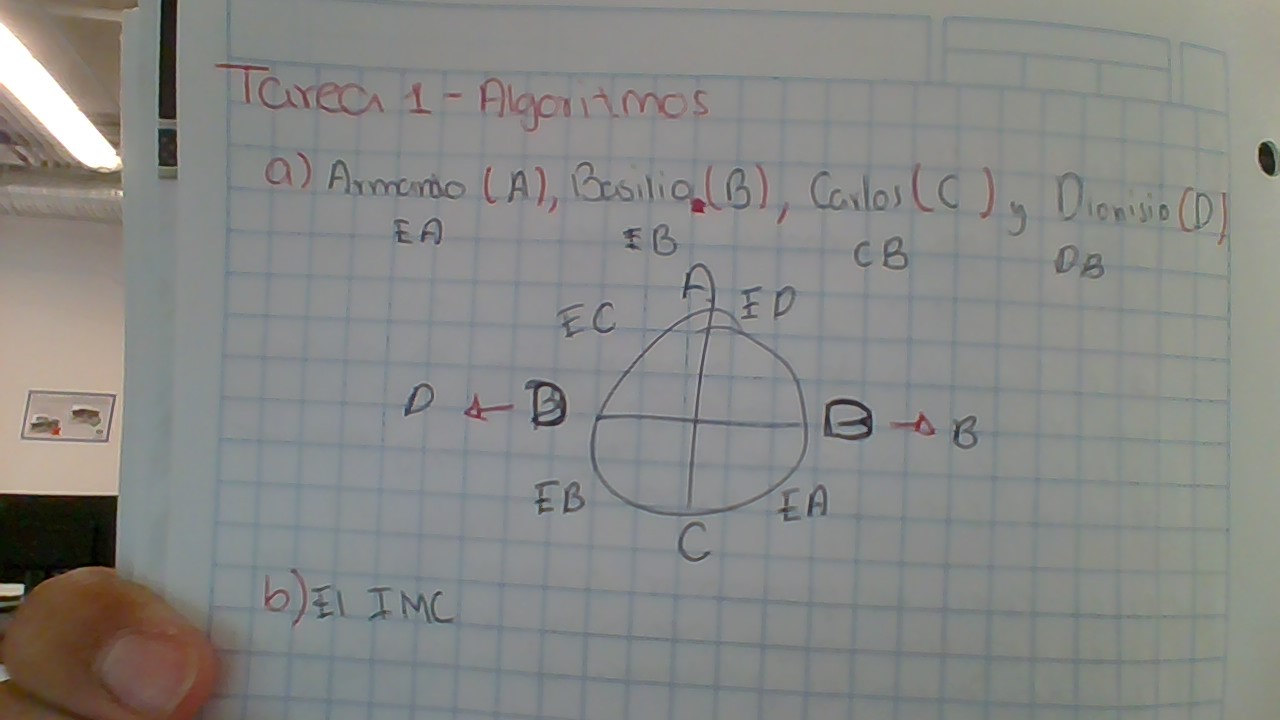 Tarea 1 - Algoritmos
a) Armando (A), Basilio (B), Carlos (C) y Dionisio (D)
EA EB CB DB
A
EC ED
D B B B
EB EA
C
b) El IMC